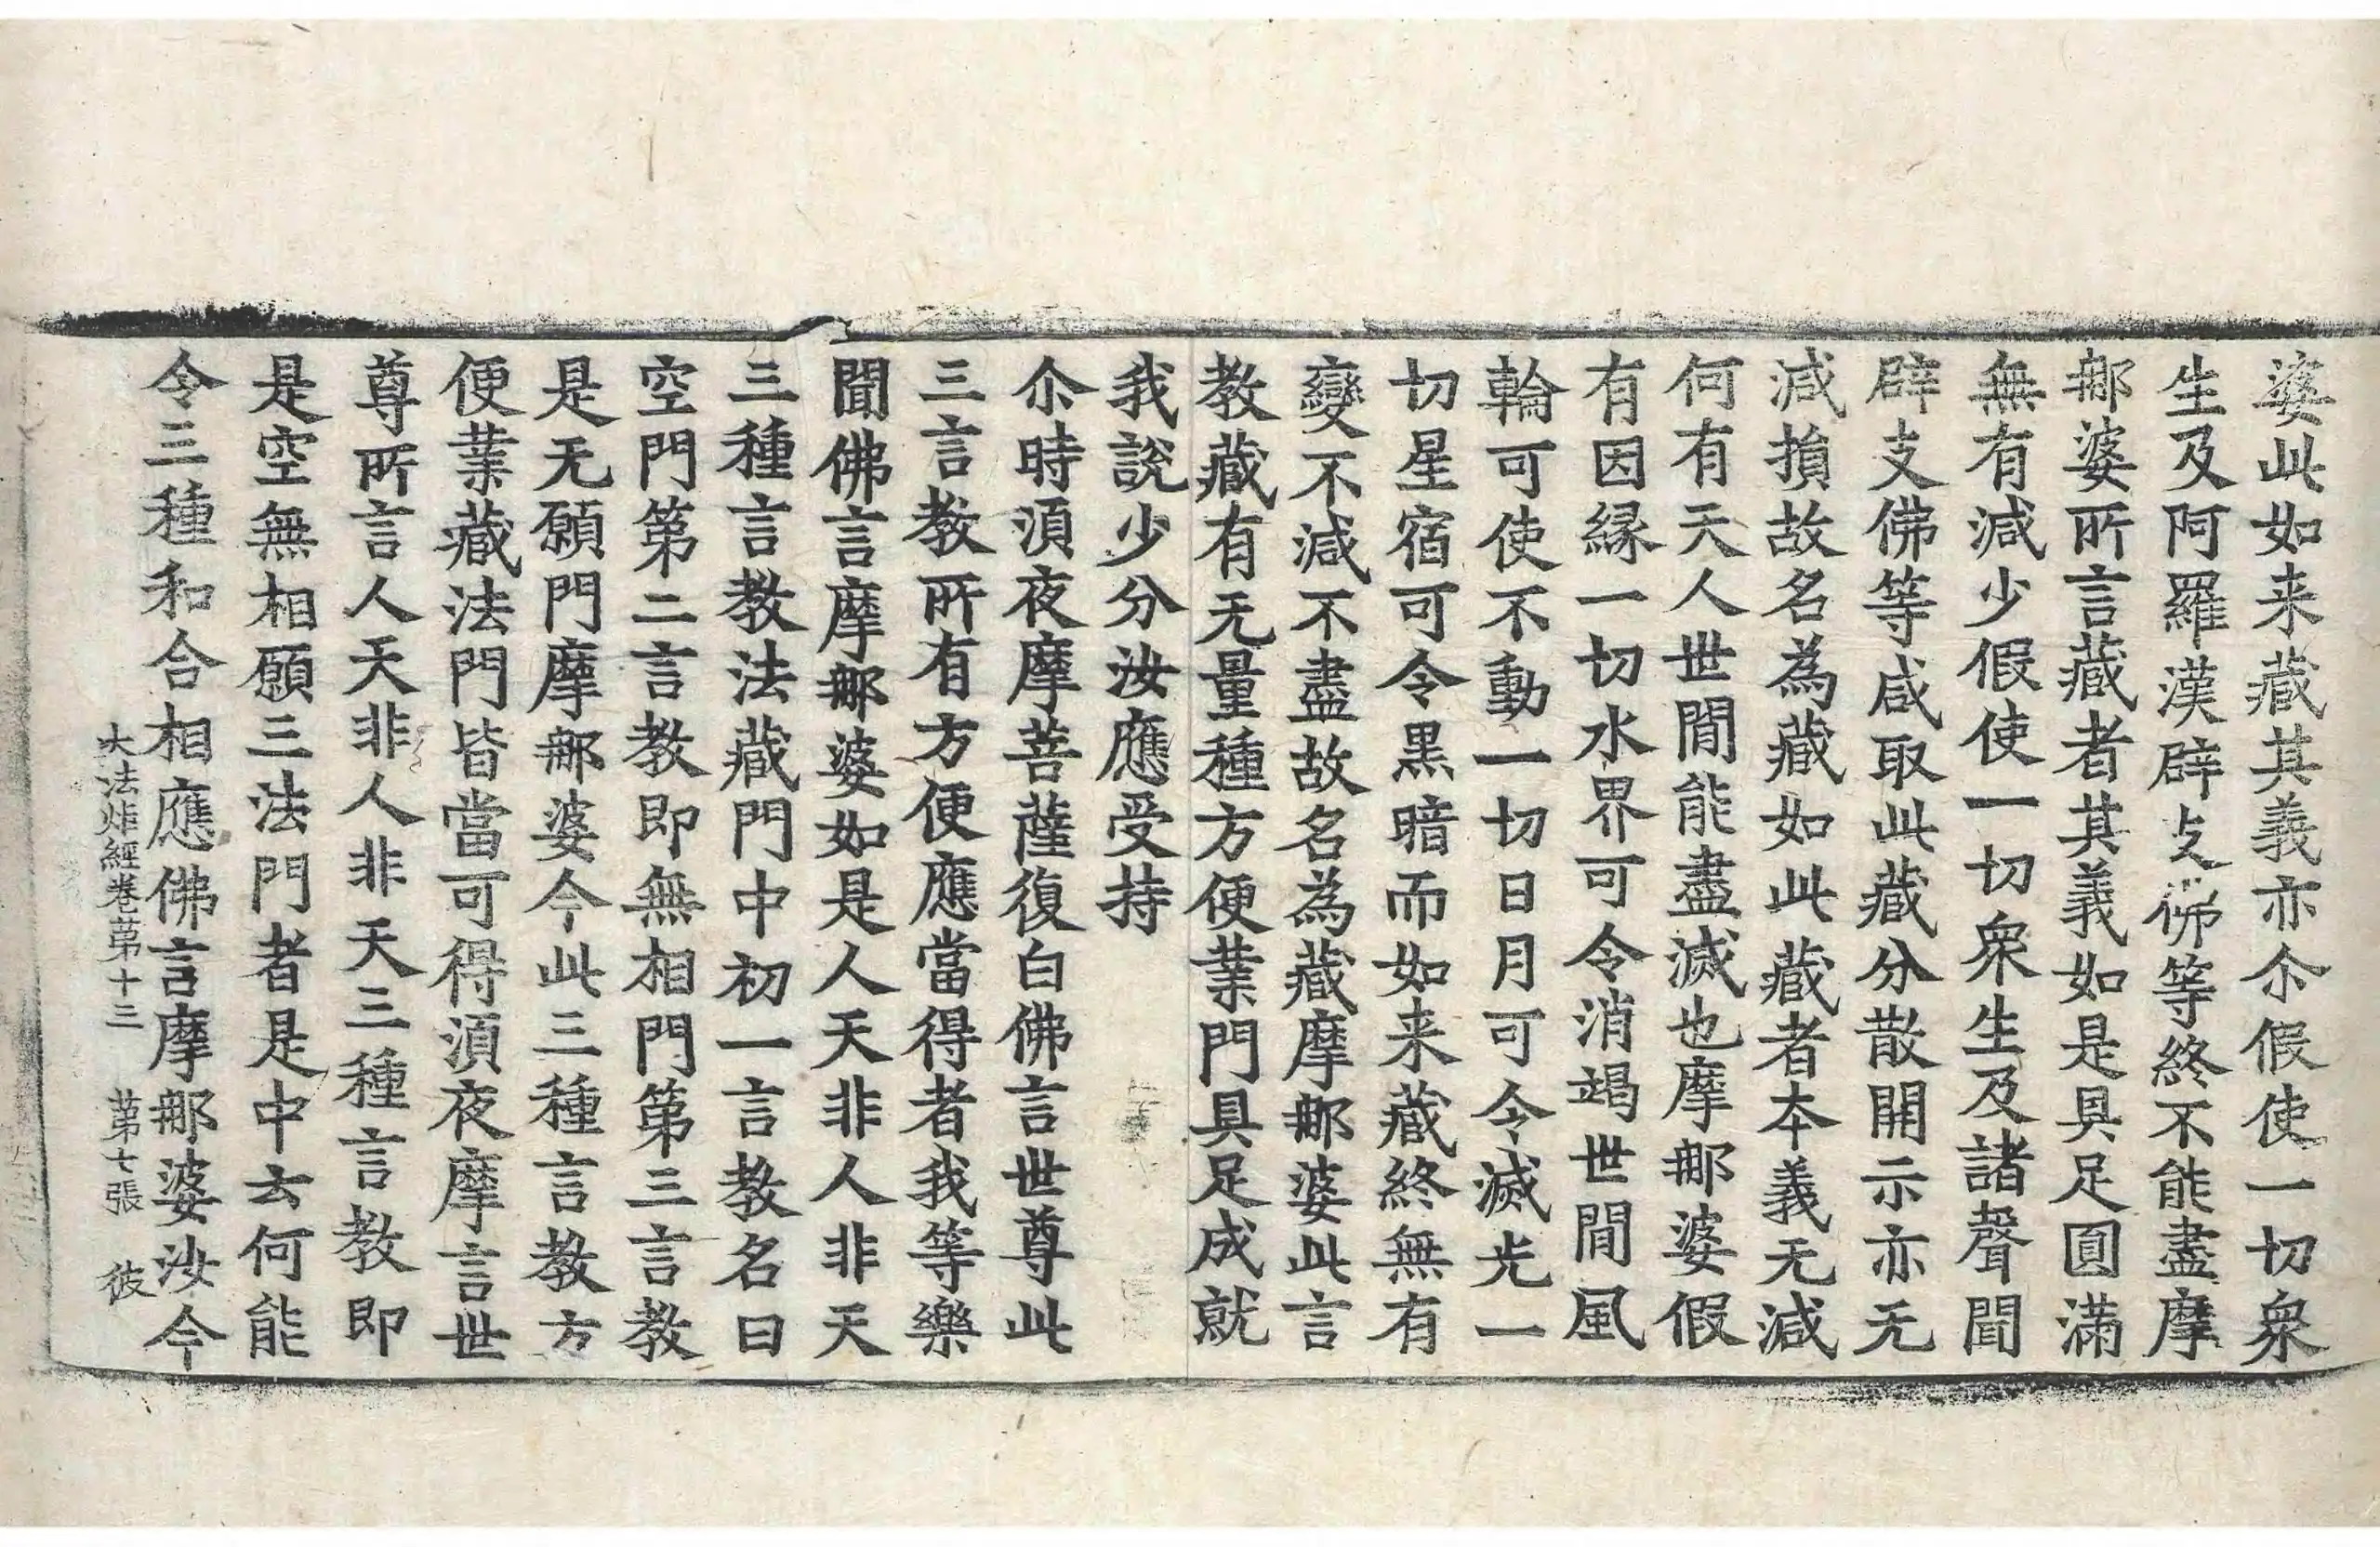 婆此如来藏其義亦尒假使一切衆
生及阿羅漢辟支佛等終不能盡摩
那婆所言藏者其義如是具足圓滿
無有減少假使一切衆生及諸聲聞
辟支佛等咸取此藏分散開示亦无
減損故名為藏如此藏者本義无減
何有天人世間能盡滅也摩那婆假
有因縁一切水界可令消竭世間風
輪可使不動一切日月可令滅光一
切星宿可令黒暗而如来藏終無有
變不減不盡故名為藏摩那婆此言
教藏有无量種方便業門具足成就
我說少分汝應受持
尒時湏夜摩菩薩復白佛言世尊此
三言教所有方便應當得者我等樂
聞佛言摩那婆如是人天非人非天
三種言教法藏門中初一言教名曰
空門第二言教即無相門第三言教
是无願門摩那婆今此三種言教方
便業藏法門皆當可得湏夜摩言世
尊所言人天非人非天三種言教即
是空無相願三法門者是中云何能
令三種和合相應佛言摩那婆汝今
大法炬經卷第十三 第七張 彼